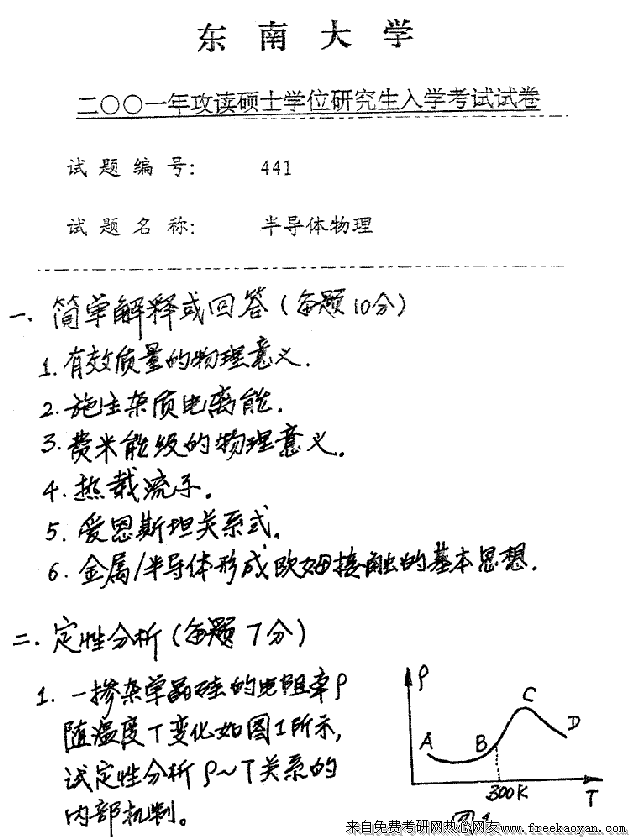 东南大学
二〇〇一年攻读硕士学位研究生入学考试试卷
试题编号： 441
试题名称： 半导体物理
一、简单解释或回答（每题10分）
1. 有效质量的物理意义.
2. 施主杂质电离能.
3. 费米能级的物理意义.
4. 热载流子。
5. 爱恩斯坦关系式。
6. 金属/半导体形成欧姆接触的基本思想.
二. 定性分析（每题7分）
1. 一掺杂单晶硅的电阻率ρ
随温度T变化如图1所示,
试定性分析ρ~T关系的
内部机制。
ρ
A
B
C
D
300K
T
图1
来自免费考研网热心网友，www.freekaoyan.com